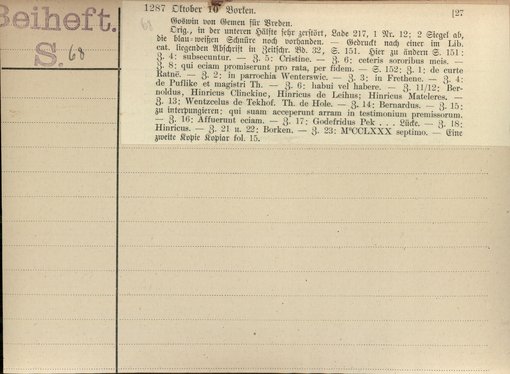 Beiheft.
S. 68
1287 Oktober 10 Borken. [27
68 Goswin von Gemen für Vreden.
Orig., in der unteren Hälfte sehr zerstört, Lade 217, 1 Nr. 12; 2 Siegel ab,
die blau-weißen Schnüre noch vorhanden. — Gedruckt nach einer im Lib.
cat. liegenden Abschrift in Zeitschr. Bd. 32, S. 151. Hier zu ändern S. 151:
Z. 4: subsecuntur. — Z. 5: Cristine. — Z. 6: ceteris sororibus meis. —
Z. 8: qui eciam promiserunt pro rata, per fidem. — S. 152: Z. 1: de curte
Ratnê. — Z. 2: in parrochia Wenterswic. — Z. 3: in Frethene. — Z. 4:
de Puflike et magistri Th. — Z. 6: habui vel habere. — Z. 11/12: Ber-
noldus, Hinricus Clinckinc, Hinricus de Leihus; Hinricus Mateleres. —
Z. 13; Wentzcelus de Tekhof. Th. de Hole. — Z. 14: Bernardus. — Z. 15:
zu interpungieren; qui suam acceperunt arram in testimonium premissorum.
— Z. 16: Affuerunt eciam. — Z. 17: Godefridus Pek . . . Lücke. — Z. 18:
Hinricus. — Z. 21 u. 22; Borken. — Z. 23: M°CCLXXX septimo. — Eine
zweite Kopie Kopiar fol. 15.